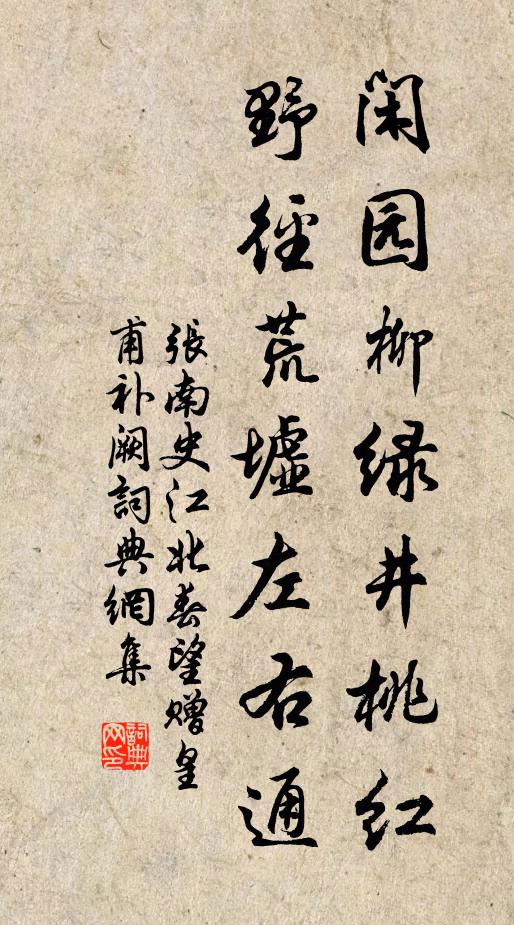 闲园柳绿井桃红
野径荒墟左右通
張南史江北春望赠皇
甫补阙詞典網集
詞典网印